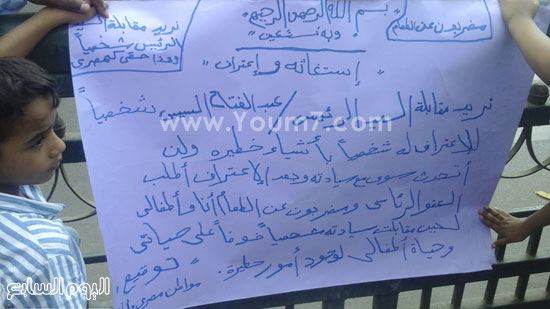 بسم الله الرحمن الرحيم
وبه نستعين
مضربون عن الطعام
نريد مقابلة
الرئيس شخصياً
وهذا حقى كمصرى
"إستغاثه وإعتراف"
نريد مقابلة السيد الرئيس / عبد الفتاح السيسى شخصياً
للإعتراف له شخصياً بأشياء خطيره ولن
أتحدث سوى مع سيادته وبعد الإعتراف أطلب
العفو الرئاسى ومضربون عن الطعام أنا وأطفالى
لحين مقابلت سيادته شخصياً خوفاً على حياتى
وحياة أطفالى لوجود أمور خطيرة.
توقيع
مواطن مصرى
www.Youm7.com
اليوم السابع